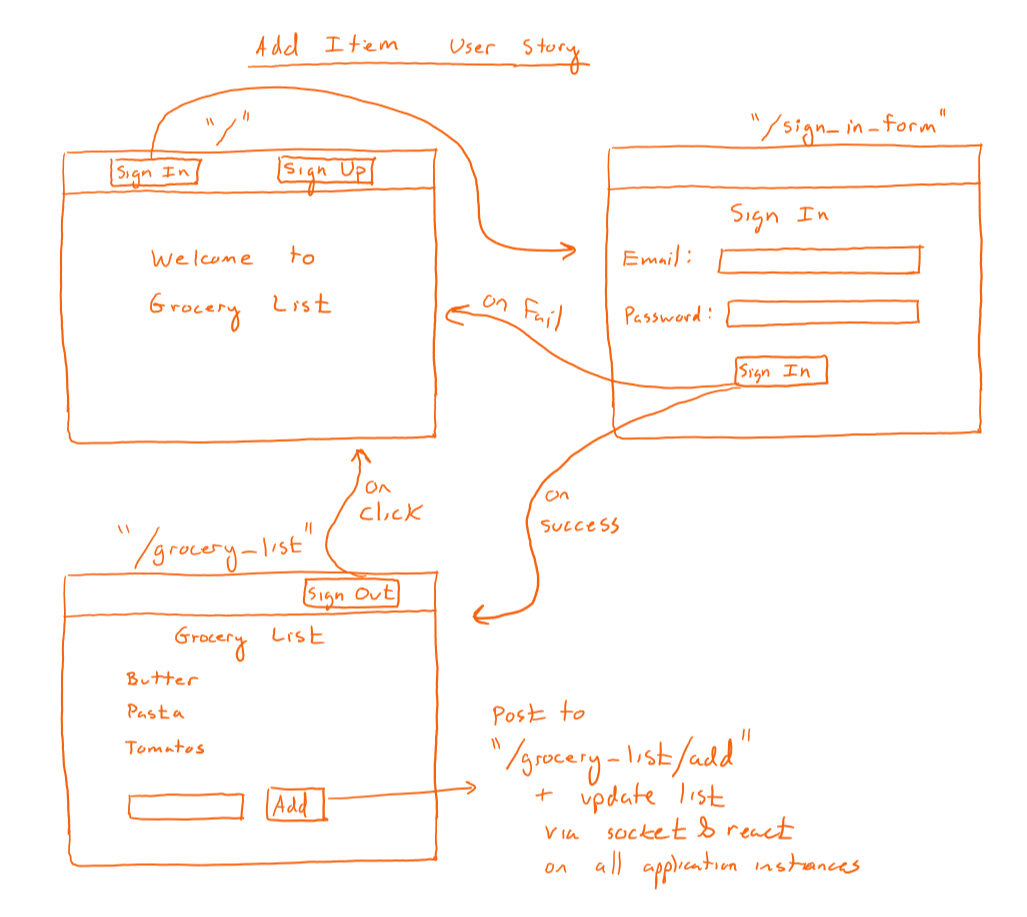 Add Item User Story
"/"
Sign In Sign Up
Welcome to
Grocery List
"/sign_in_form"
Sign In
Email:
Password:
Sign In
on Fail
on
success
on
click
"/grocery_list"
Sign Out
Grocery List
Butter
Pasta
Tomatos
Add
Post to
"/grocery-list/add"
+ update list
via socket & react
on all application instances